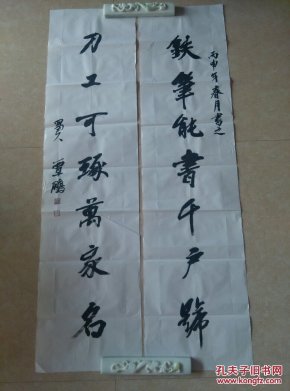 丙申年春月書之
鐵筆能書千户號
刀工可琢萬家名
孔夫子旧书网